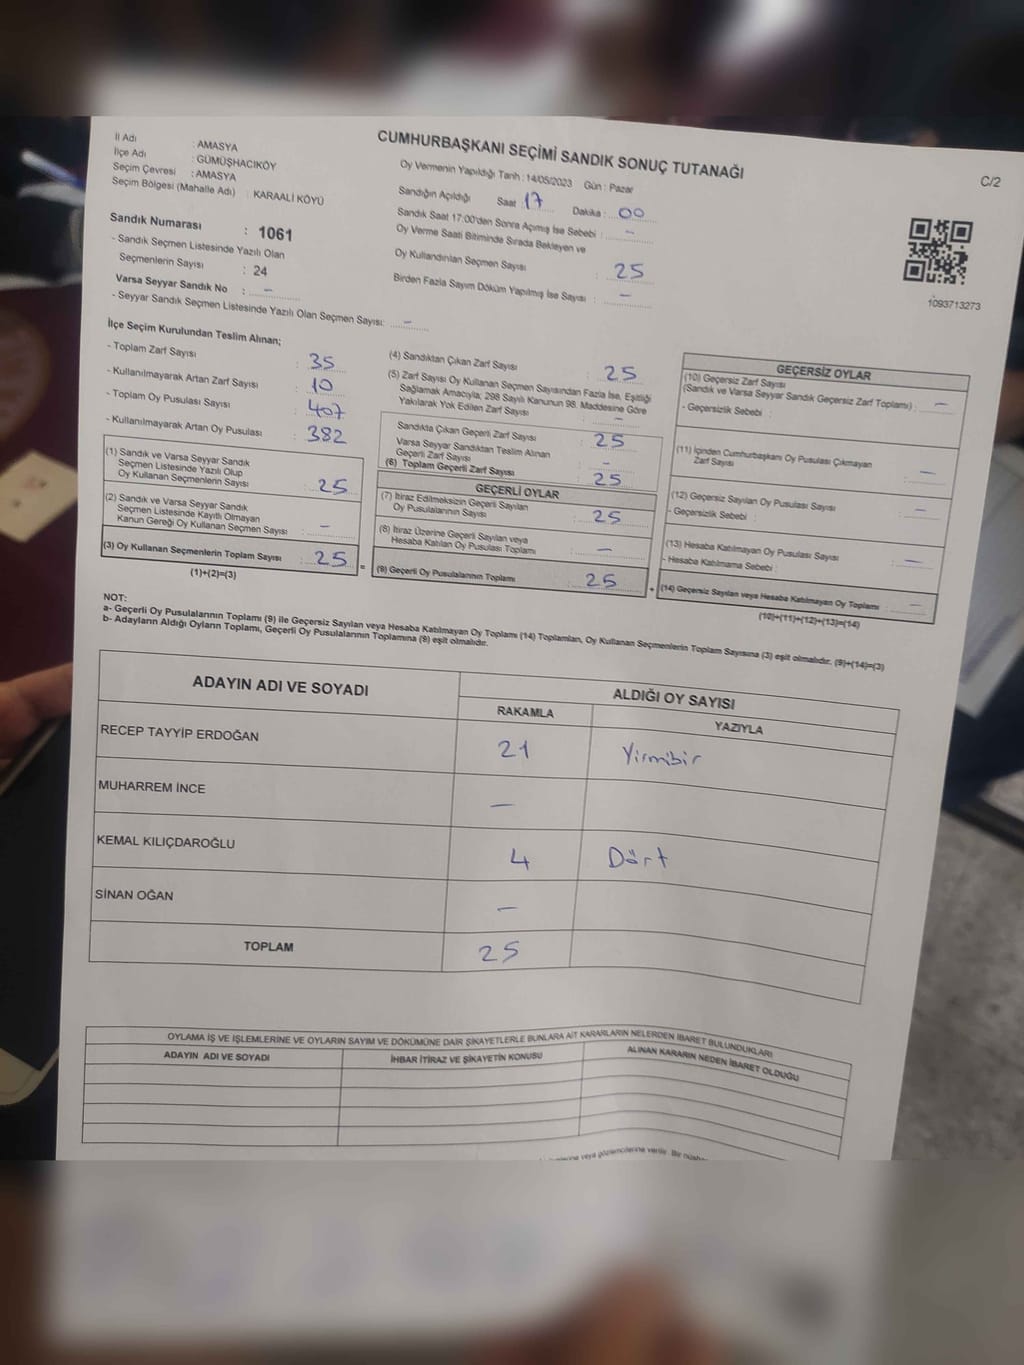 CUMHURBAŞKANI SEÇİMİ SANDIK SONUÇ TUTANAĞI
C/2
İl Adı : AMASYA
İlçe Adı : GÜMÜŞHACIKÖY
Seçim Çevresi : AMASYA
Seçim Bölgesi (Mahalle Adı) : KARAALİ KÖYÜ
Sandık Numarası : 1061
- Sandık Seçmen Listesinde Yazılı Olan
Seçmenlerin Sayısı : 24
Varsa Seyyar Sandık No : –
- Seyyar Sandık Seçmen Listesinde Yazılı Olan Seçmen Sayısı: –
Oy Vermenin Yapıldığı Tarih : 14/05/2023 Gün : Pazar
Sandığın Açıldığı Saat 17 Dakika : 00
Sandık Saat 17:00'den Sonra Açılmış İse Sebebi : –
Oy Verme Saati Bitiminde Sırada Bekleyen ve
Oy Kullandırılan Seçmen Sayısı : 25
Birden Fazla Sayım Döküm Yapılmış İse Sayısı : –
1093713273
İlçe Seçim Kurulundan Teslim Alınan;
- Toplam Zarf Sayısı : 35
- Kullanılmayarak Artan Zarf Sayısı : 10
- Toplam Oy Pusulası Sayısı : 407
- Kullanılmayarak Artan Oy Pusulası : 382
(1) Sandık ve Varsa Seyyar Sandık
Seçmen Listesinde Yazılı Olup
Oy Kullanan Seçmenlerin Sayısı : 25
(2) Sandık ve Varsa Seyyar Sandık
Seçmen Listesinde Kayıtlı Olmayan
Kanun Gereği Oy Kullanan Seçmen Sayısı : –
(3) Oy Kullanan Seçmenlerin Toplam Sayısı : 25 =
(1)+(2)=(3)
(4) Sandıktan Çıkan Zarf Sayısı : 25
(5) Zarf Sayısı Oy Kullanan Seçmen Sayısından Fazla İse, Eşitliği
Sağlamak Amacıyla; 298 Sayılı Kanunun 98. Maddesine Göre
Yakılarak Yok Edilen Zarf Sayısı : –
Sandıkta Çıkan Geçerli Zarf Sayısı : 25
Varsa Seyyar Sandıktan Teslim Alınan
Geçerli Zarf Sayısı : –
(6) Toplam Geçerli Zarf Sayısı : 25
GEÇERLİ OYLAR
(7) İtiraz Edilmeksizin Geçerli Sayılan
Oy Pusulalarının Sayısı : 25
(8) İtiraz Üzerine Geçerli Sayılan veya
Hesaba Katılan Oy Pusulası Toplamı : –
(9) Geçerli Oy Pusulalarının Toplamı : 25 +
GEÇERSİZ OYLAR
(10) Geçersiz Zarf Sayısı
(Sandık ve Varsa Seyyar Sandık Geçersiz Zarf Toplamı) : –
- Geçersizlik Sebebi :
(11) İçinden Cumhurbaşkanı Oy Pusulası Çıkmayan
Zarf Sayısı : –
(12) Geçersiz Sayılan Oy Pusulası Sayısı : –
- Geçersizlik Sebebi :
(13) Hesaba Katılmayan Oy Pusulası Sayısı : –
- Hesaba Katılmama Sebebi :
(14) Geçersiz Sayılan veya Hesaba Katılmayan Oy Toplamı : –
(10)+(11)+(12)+(13)=(14)
NOT:
a- Geçerli Oy Pusulalarının Toplamı (9) ile Geçersiz Sayılan veya Hesaba Katılmayan Oy Toplamı (14) Toplamları, Oy Kullanan Seçmenlerin Toplam Sayısına (3) eşit olmalıdır. (9)+(14)=(3)
b- Adayların Aldığı Oyların Toplamı, Geçerli Oy Pusulalarının Toplamına (9) eşit olmalıdır.
ADAYIN ADI VE SOYADI ALDIĞI OY SAYISI
RAKAMLA YAZIYLA
RECEP TAYYİP ERDOĞAN 21 Yirmibir
MUHARREM İNCE –
KEMAL KILIÇDAROĞLU 4 Dört
SİNAN OĞAN –
TOPLAM 25
OYLAMA İŞ VE İŞLEMLERİNE VE OYLARIN SAYIM VE DÖKÜMÜNE DAİR ŞİKAYETLERLE BUNLARA AİT KARARLARIN NELERDEN İBARET BULUNDUKLARI
ADAYIN ADI VE SOYADI İHBAR İTİRAZ VE ŞİKAYETİN KONUSU ALINAN KARARIN NEDEN İBARET OLDUĞU
veya gözlemcilerine verilir. Bir